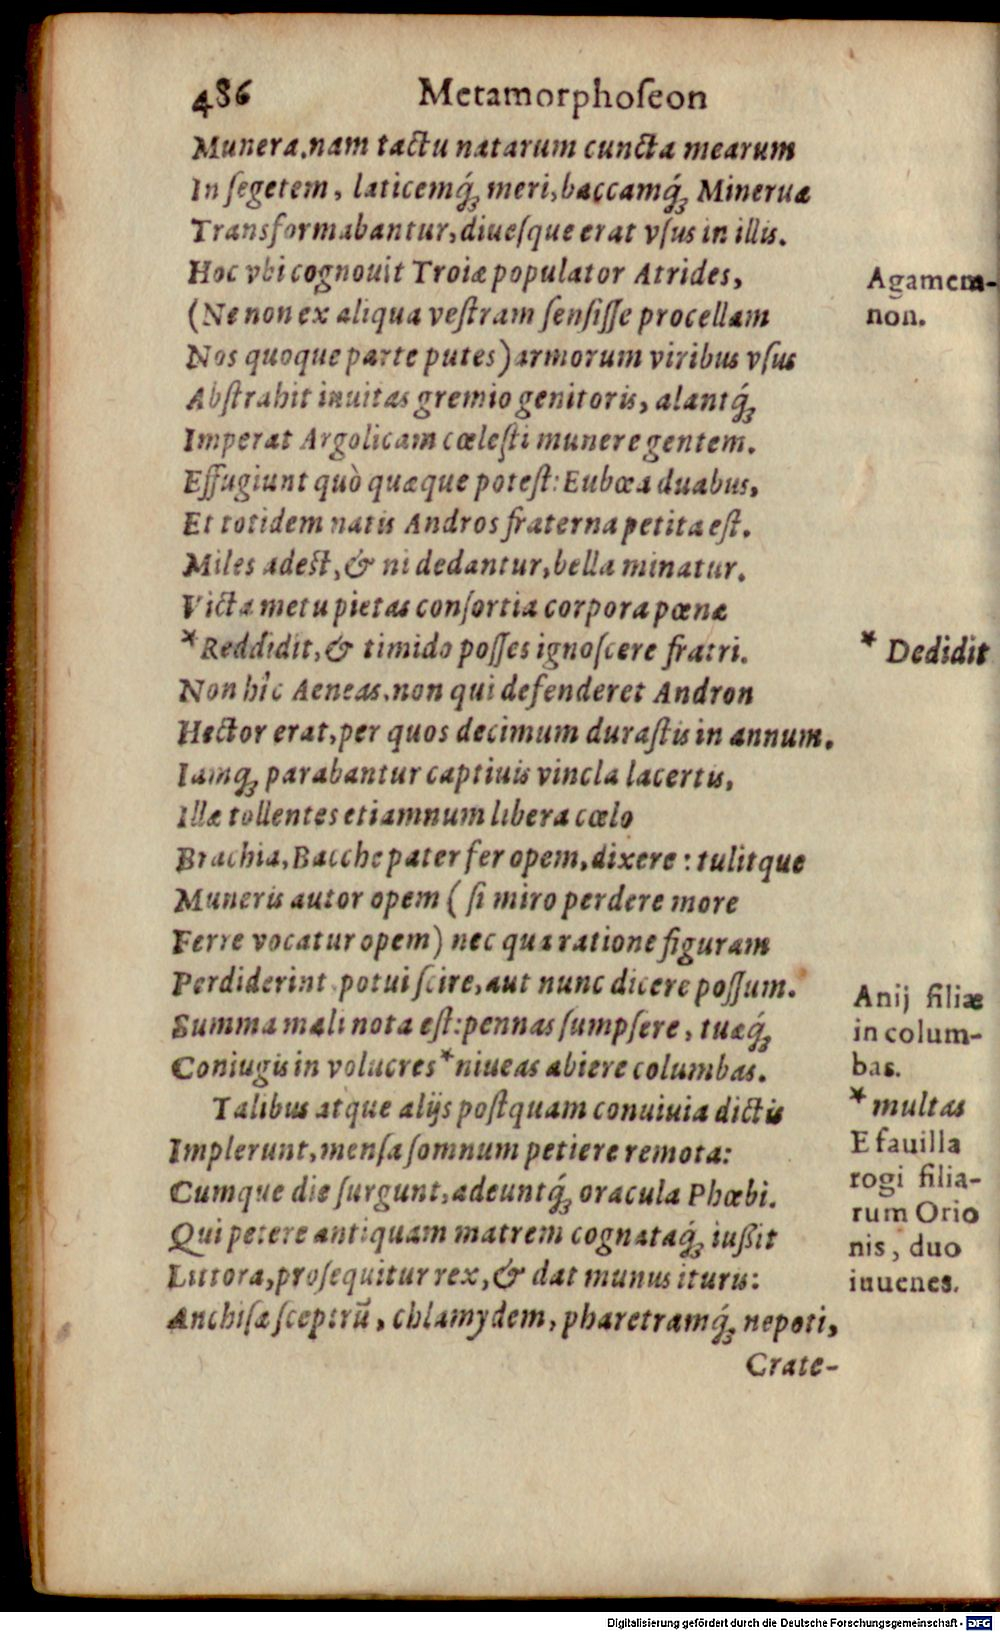 486 Metamorphoſeon
Munera, nam tactu natarum cuncta mearum
In ſegetem, laticemq́ꝫ meri, baccamq́ꝫ Mineruæ
Transformabantur, diueſque erat vſus in illis.
Hoc vbi cognouit Troiæ populator Atrides,
(Ne non ex aliqua veſtram ſenſiſſe procellam
Nos quoque parte putes) armorum viribus vſus
Abſtrahit inuitas gremio genitoris, alantq́ꝫ
Imperat Argolicam cœleſti munere gentem.
Effugiunt quò quæque poteſt: Eubœa duabus,
Et totidem natis Andros fraterna petita eſt.
Miles adeſt, & ni dedantur, bella minatur.
Victa metu pietas conſortia corpora pœnæ
*Reddidit, & timido poſſes ignoſcere fratri.
Non hîc Aeneas, non qui defenderet Andron
Hector erat, per quos decimum duraſtis in annum.
Iamqꝫ parabantur captiuis vincla lacertis,
Illæ tollentes etiamnum libera cœlo
Brachia, Bacche pater fer opem, dixere: tulitque
Muneris autor opem (ſi miro perdere more
Ferre vocatur opem) nec qua ratione figuram
Perdiderint potui ſcire, aut nunc dicere poſſum.
Summa mali nota eſt: pennas ſumpſere, tuæq́ꝫ
Coniugis in volucres *niueas abiere columbas.
Talibus atque alijs poſtquam conuiuia dictis
Implerunt, menſa ſomnum petiere remota:
Cumque die ſurgunt, adeuntq́ꝫ oracula Phœbi.
Qui petere antiquam matrem cognataq́ꝫ iußit
Littora, proſequitur rex, & dat munus ituris:
Anchiſæ ſceptrū, chlamydem, pharetramq́ꝫ nepoti,
Crate-
Agamem-
non.
* Dedidit
Anij filiæ
in colum-
bas.
* multas
E fauilla
rogi filia-
rum Orio
nis, duo
iuuenes.
Digitalisierung gefördert durch die Deutsche Forschungsgemeinschaft - DFG